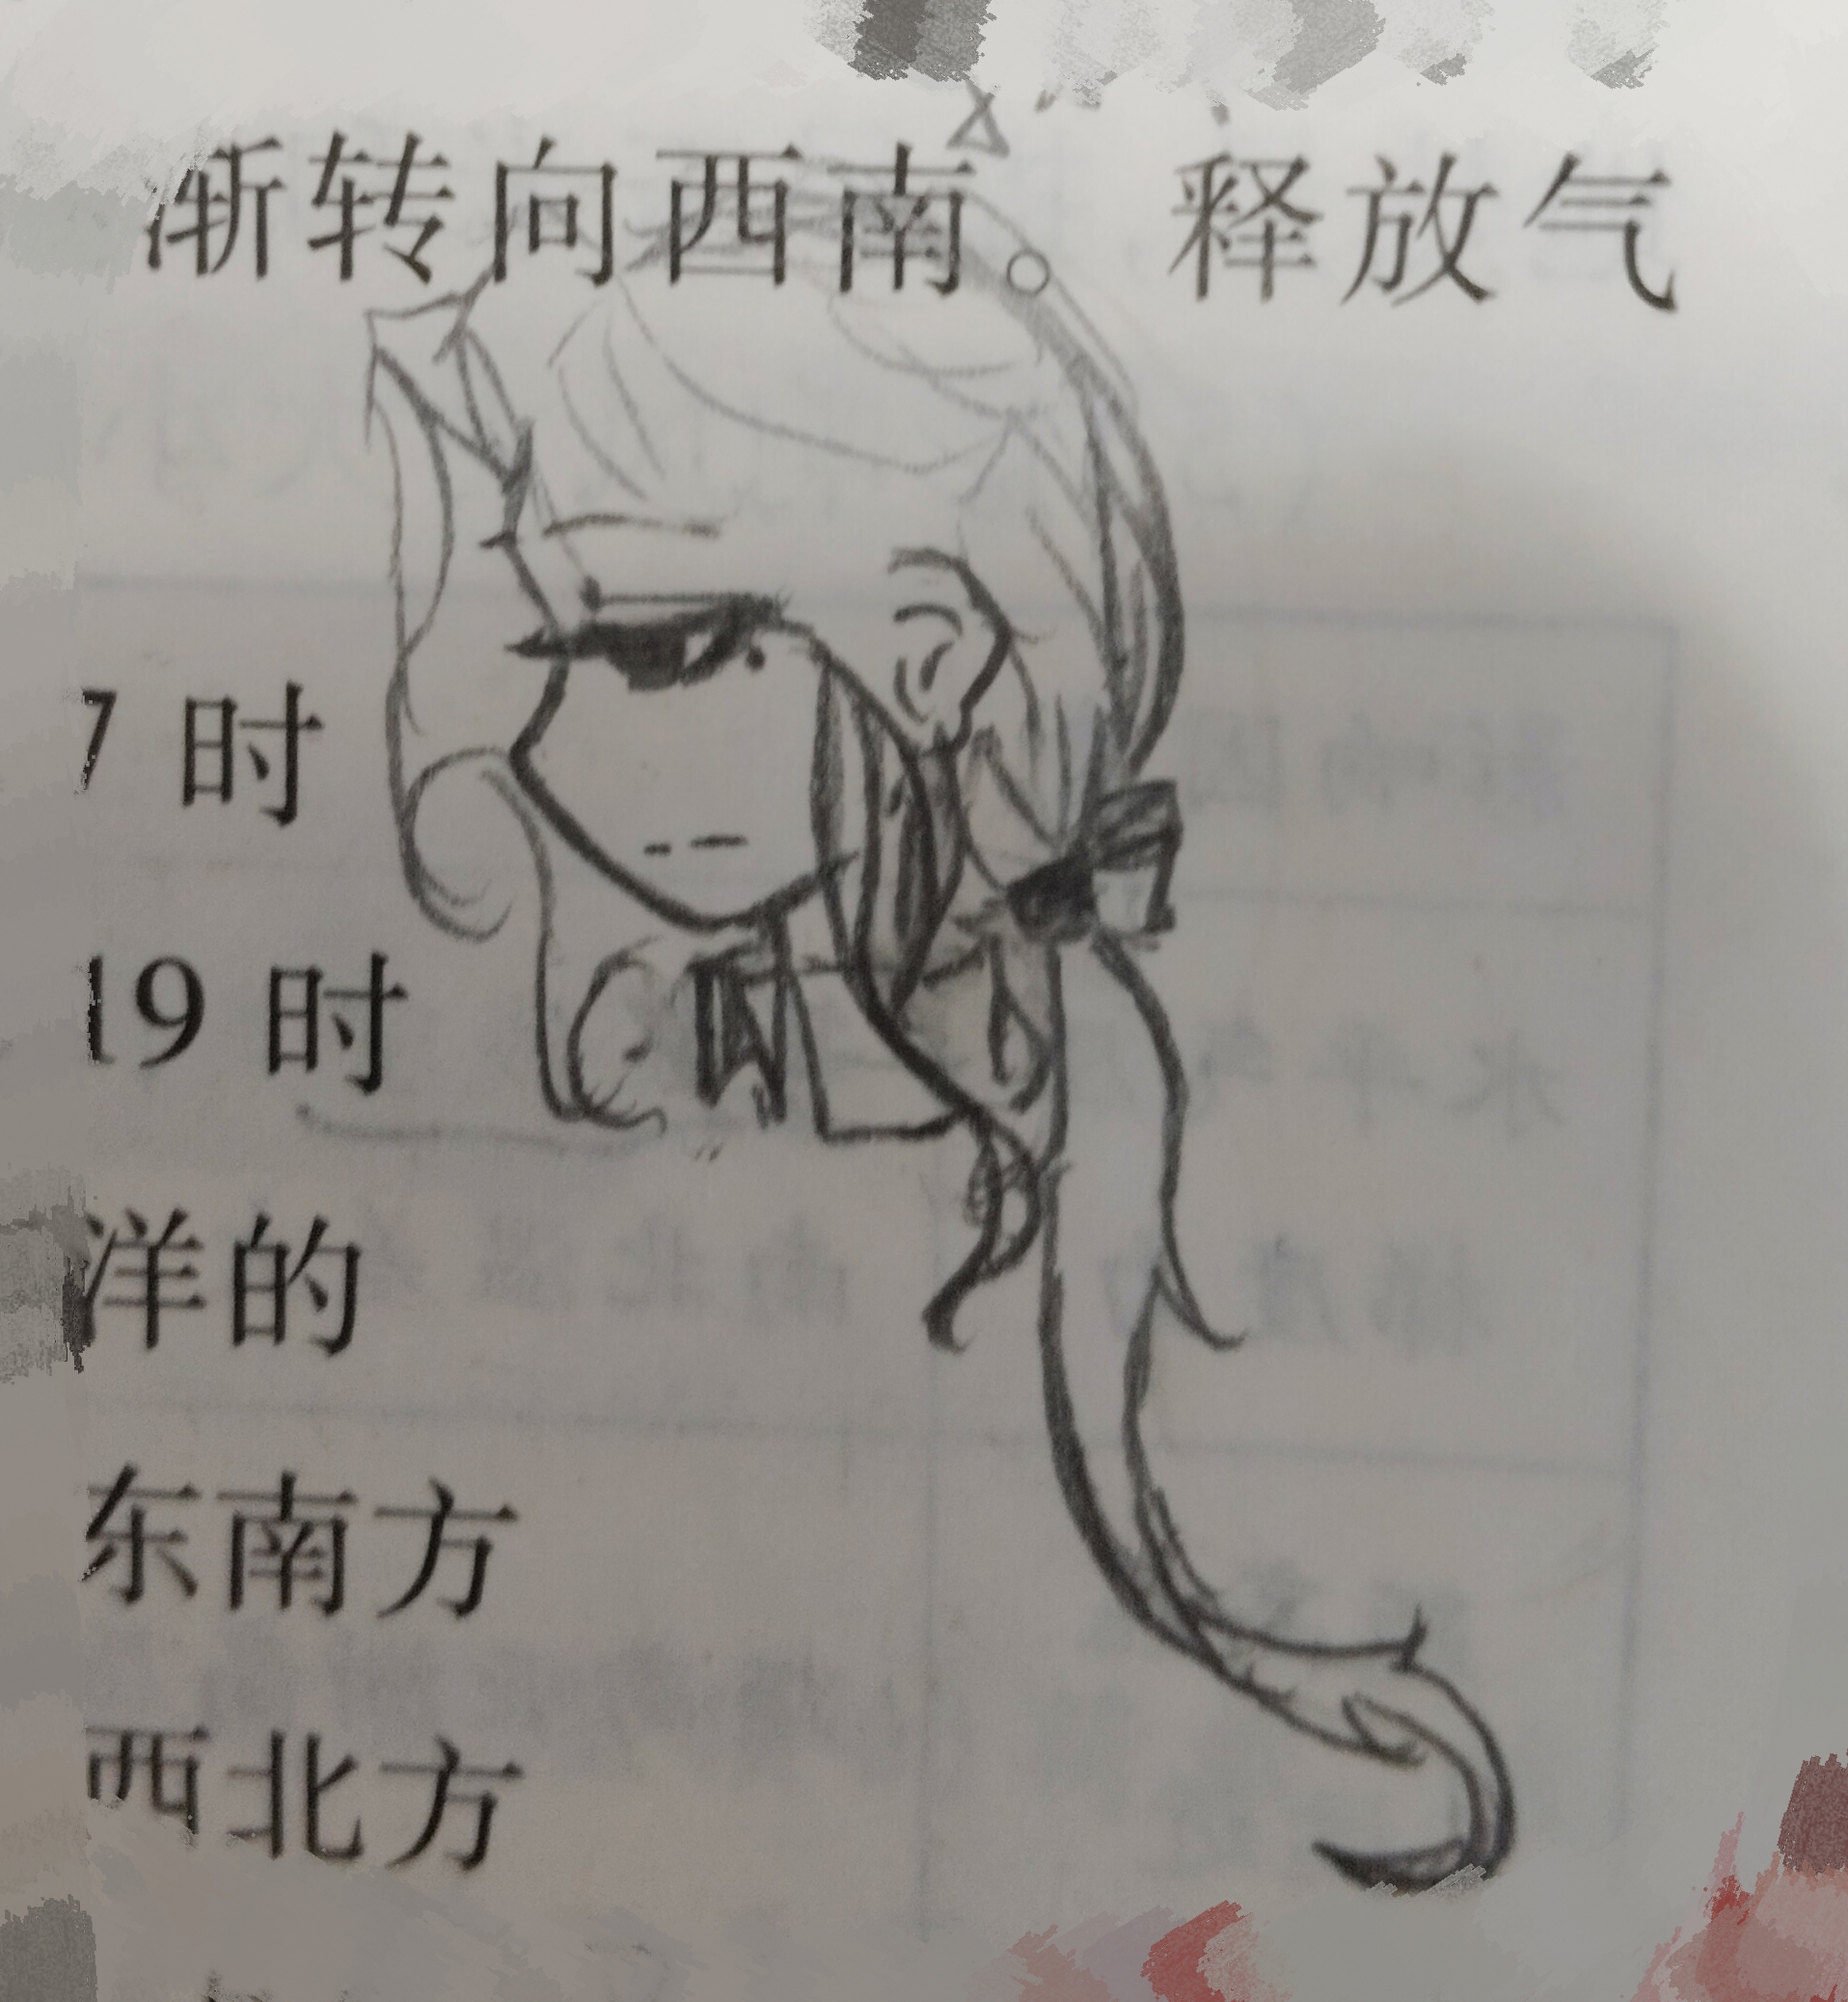 渐转向西南。 释放气
7 时
19 时
洋的
东南方
西北方